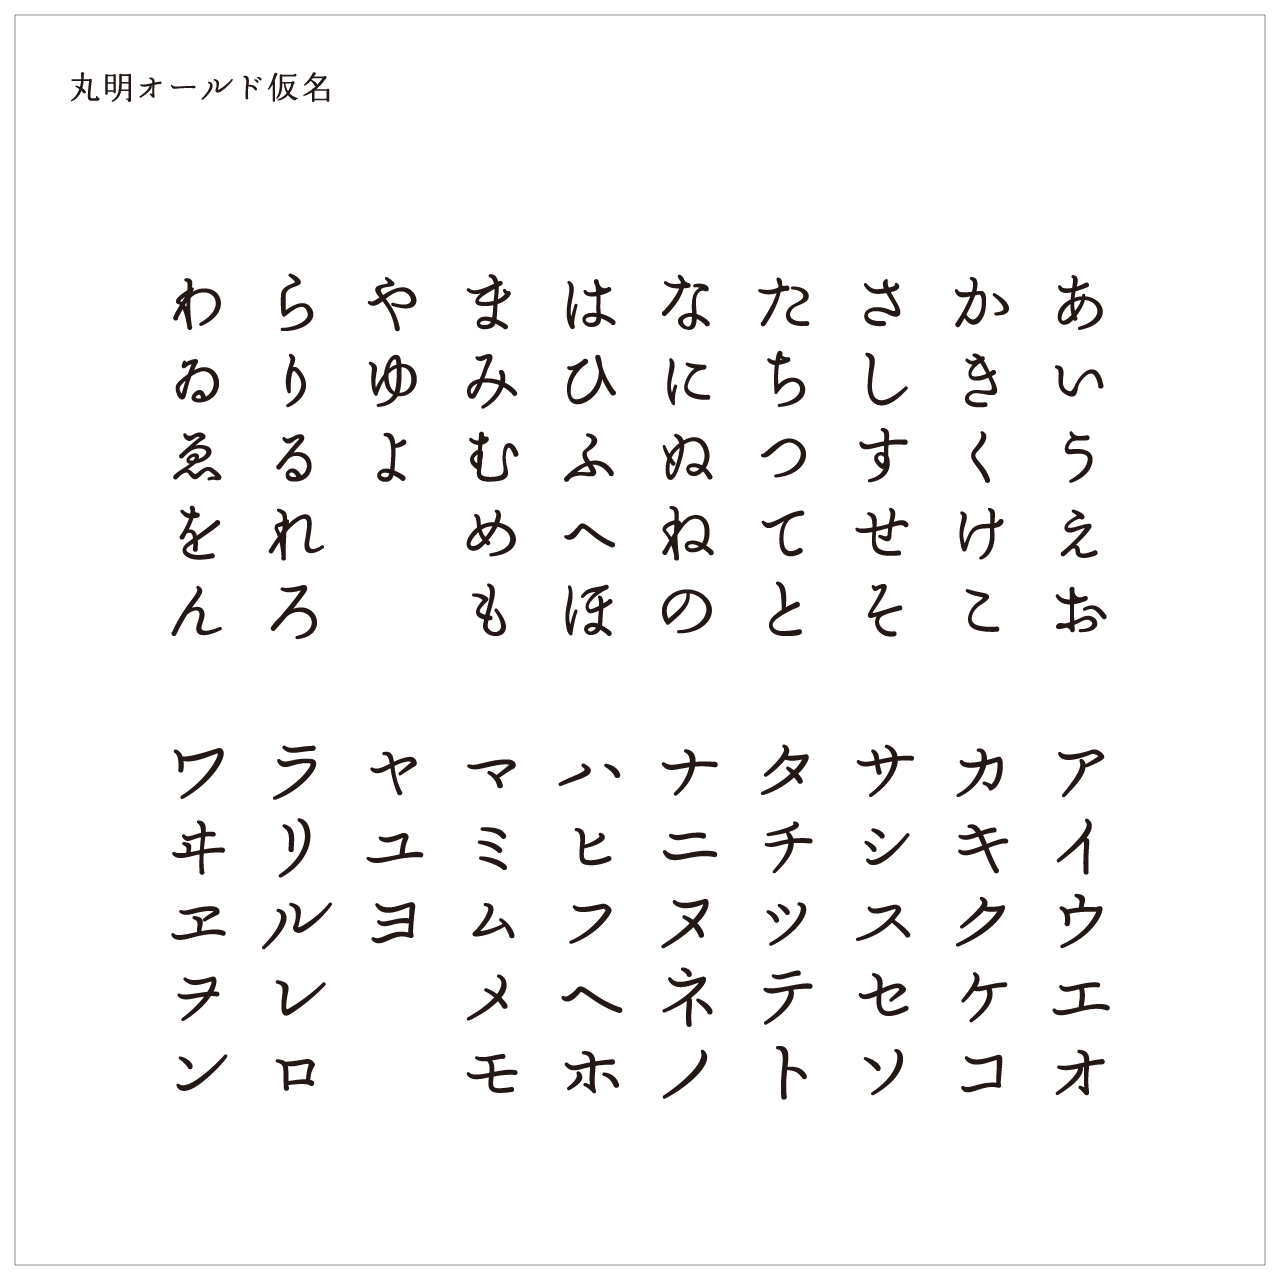 丸明オールド仮名
あいうえお
かきくけこ
さしすせそ
たちつてと
なにぬねの
はひふへほ
まみむめも
やゆよ
らりるれろ
わゐゑをん
アイウエオ
カキクケコ
サシスセソ
タチツテト
ナニヌネノ
ハヒフヘホ
マミムメモ
ヤユヨ
ラリルレロ
ワヰヱヲン